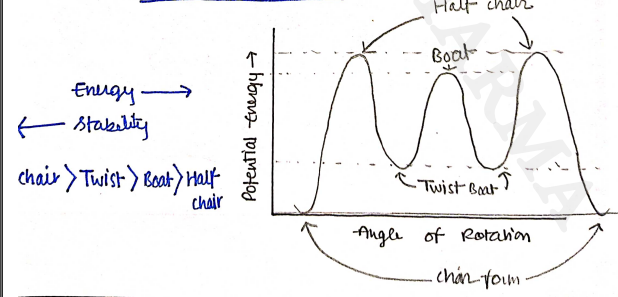 Half chair
Boat
Energy →
← Stability
chair > Twist > Boat > Half
chair
Potential Energy →
Twist Boat
Angle of Rotation
chair form
ARMA